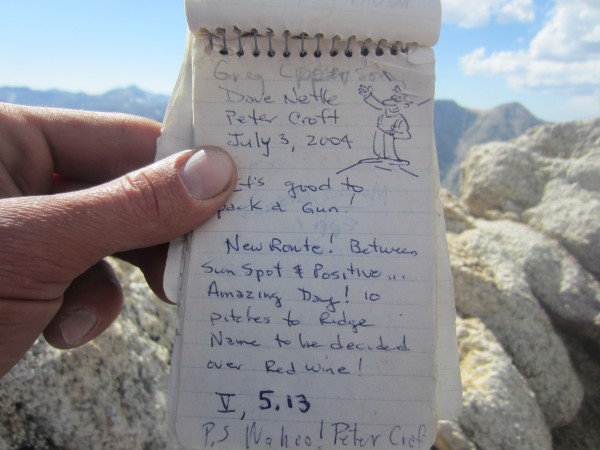 Greg
Dave Nettle
Peter Croft
July 3, 2004
It's good to
pack a Gun!
New Route! Between
Sun Spot & Positive...
Amazing Day! 10
pitches to Ridge
Name to be decided
over Red Wine!
V, 5.13
P.S Wahoo! Peter Croft